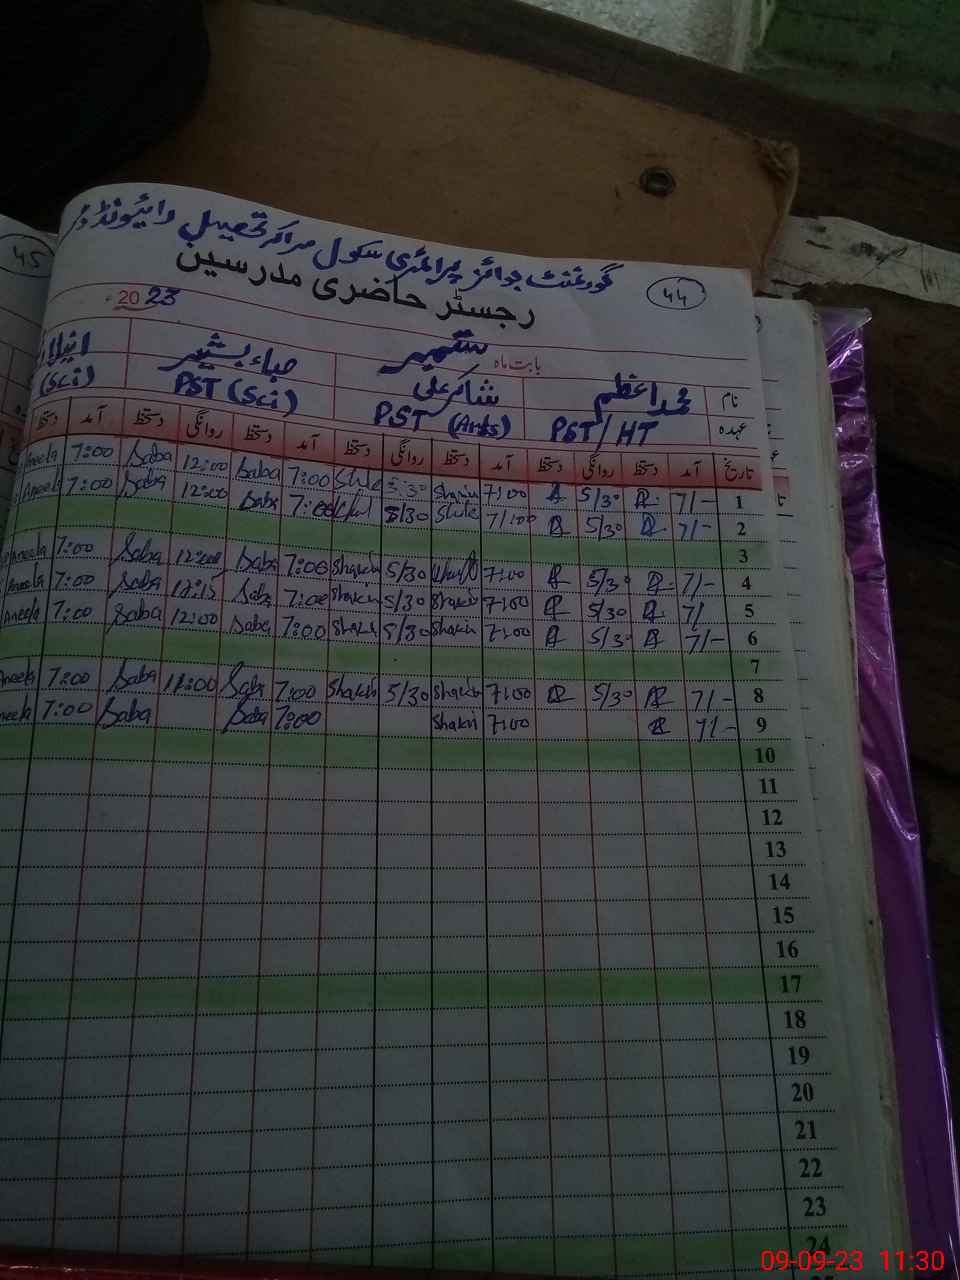 45
گورنمنٹ بوائز پرائمری سکول مراکہ تحصیل رائیونڈ
44
رجسٹر حاضری مدرسین
2023
بابت ماہ ستمبر
نام محمد اعظم شاکر علی صباء بشیر انیلا
عہدہ PST/HT PST (Arts) PST (Sci) (Sci)
تاریخ آمد دستخط روانگی دستخط آمد دستخط روانگی دستخط آمد دستخط روانگی دستخط آمد دستخط
1 7/- 5/30 7:00 Shakir 5/30 7:00 Saba 12:00 Saba 7:00 Aneela
2 7/- 5/30 7/100 5/30 7:00 Saba 12:00 Saba 7:00 Aneela
3
4 7/- 5/30 7:00 5/30 Shakir 7:00 Saba 12:00 Saba 7:00 Aneela
5 7/ 5/30 7:00 Shakir 5/30 Shakir 7:00 Saba 12:15 Saba 7:00 Aneela
6 7/- 5/30 7:00 Shakir 5/30 Shakir 7:00 Saba 12:00 Saba 7:00 Aneela
7
8 7/- 5/30 7:00 Shakir 5/30 Shakir 7:00 Saba 11:00 Saba 7:00 Aneela
9 7/- 7:00 Shakir 7:00 Saba Saba 7:00 neela
10
11
12
13
14
15
16
17
18
19
20
21
22
23
24
09-09-23 11:30